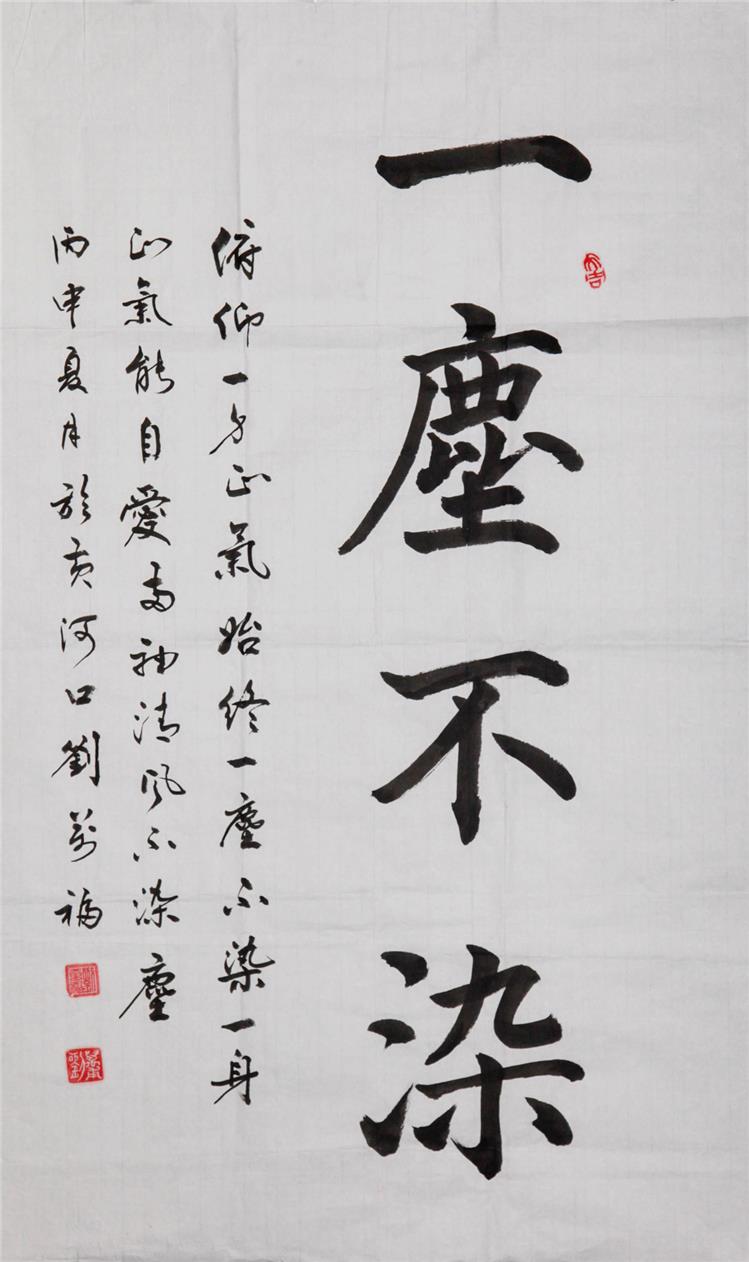 一塵不染
俯仰一身正氣始終一塵不染一身
正氣能自愛兩袖清風不染塵
丙申夏月於黄河口劉萬福
大吉